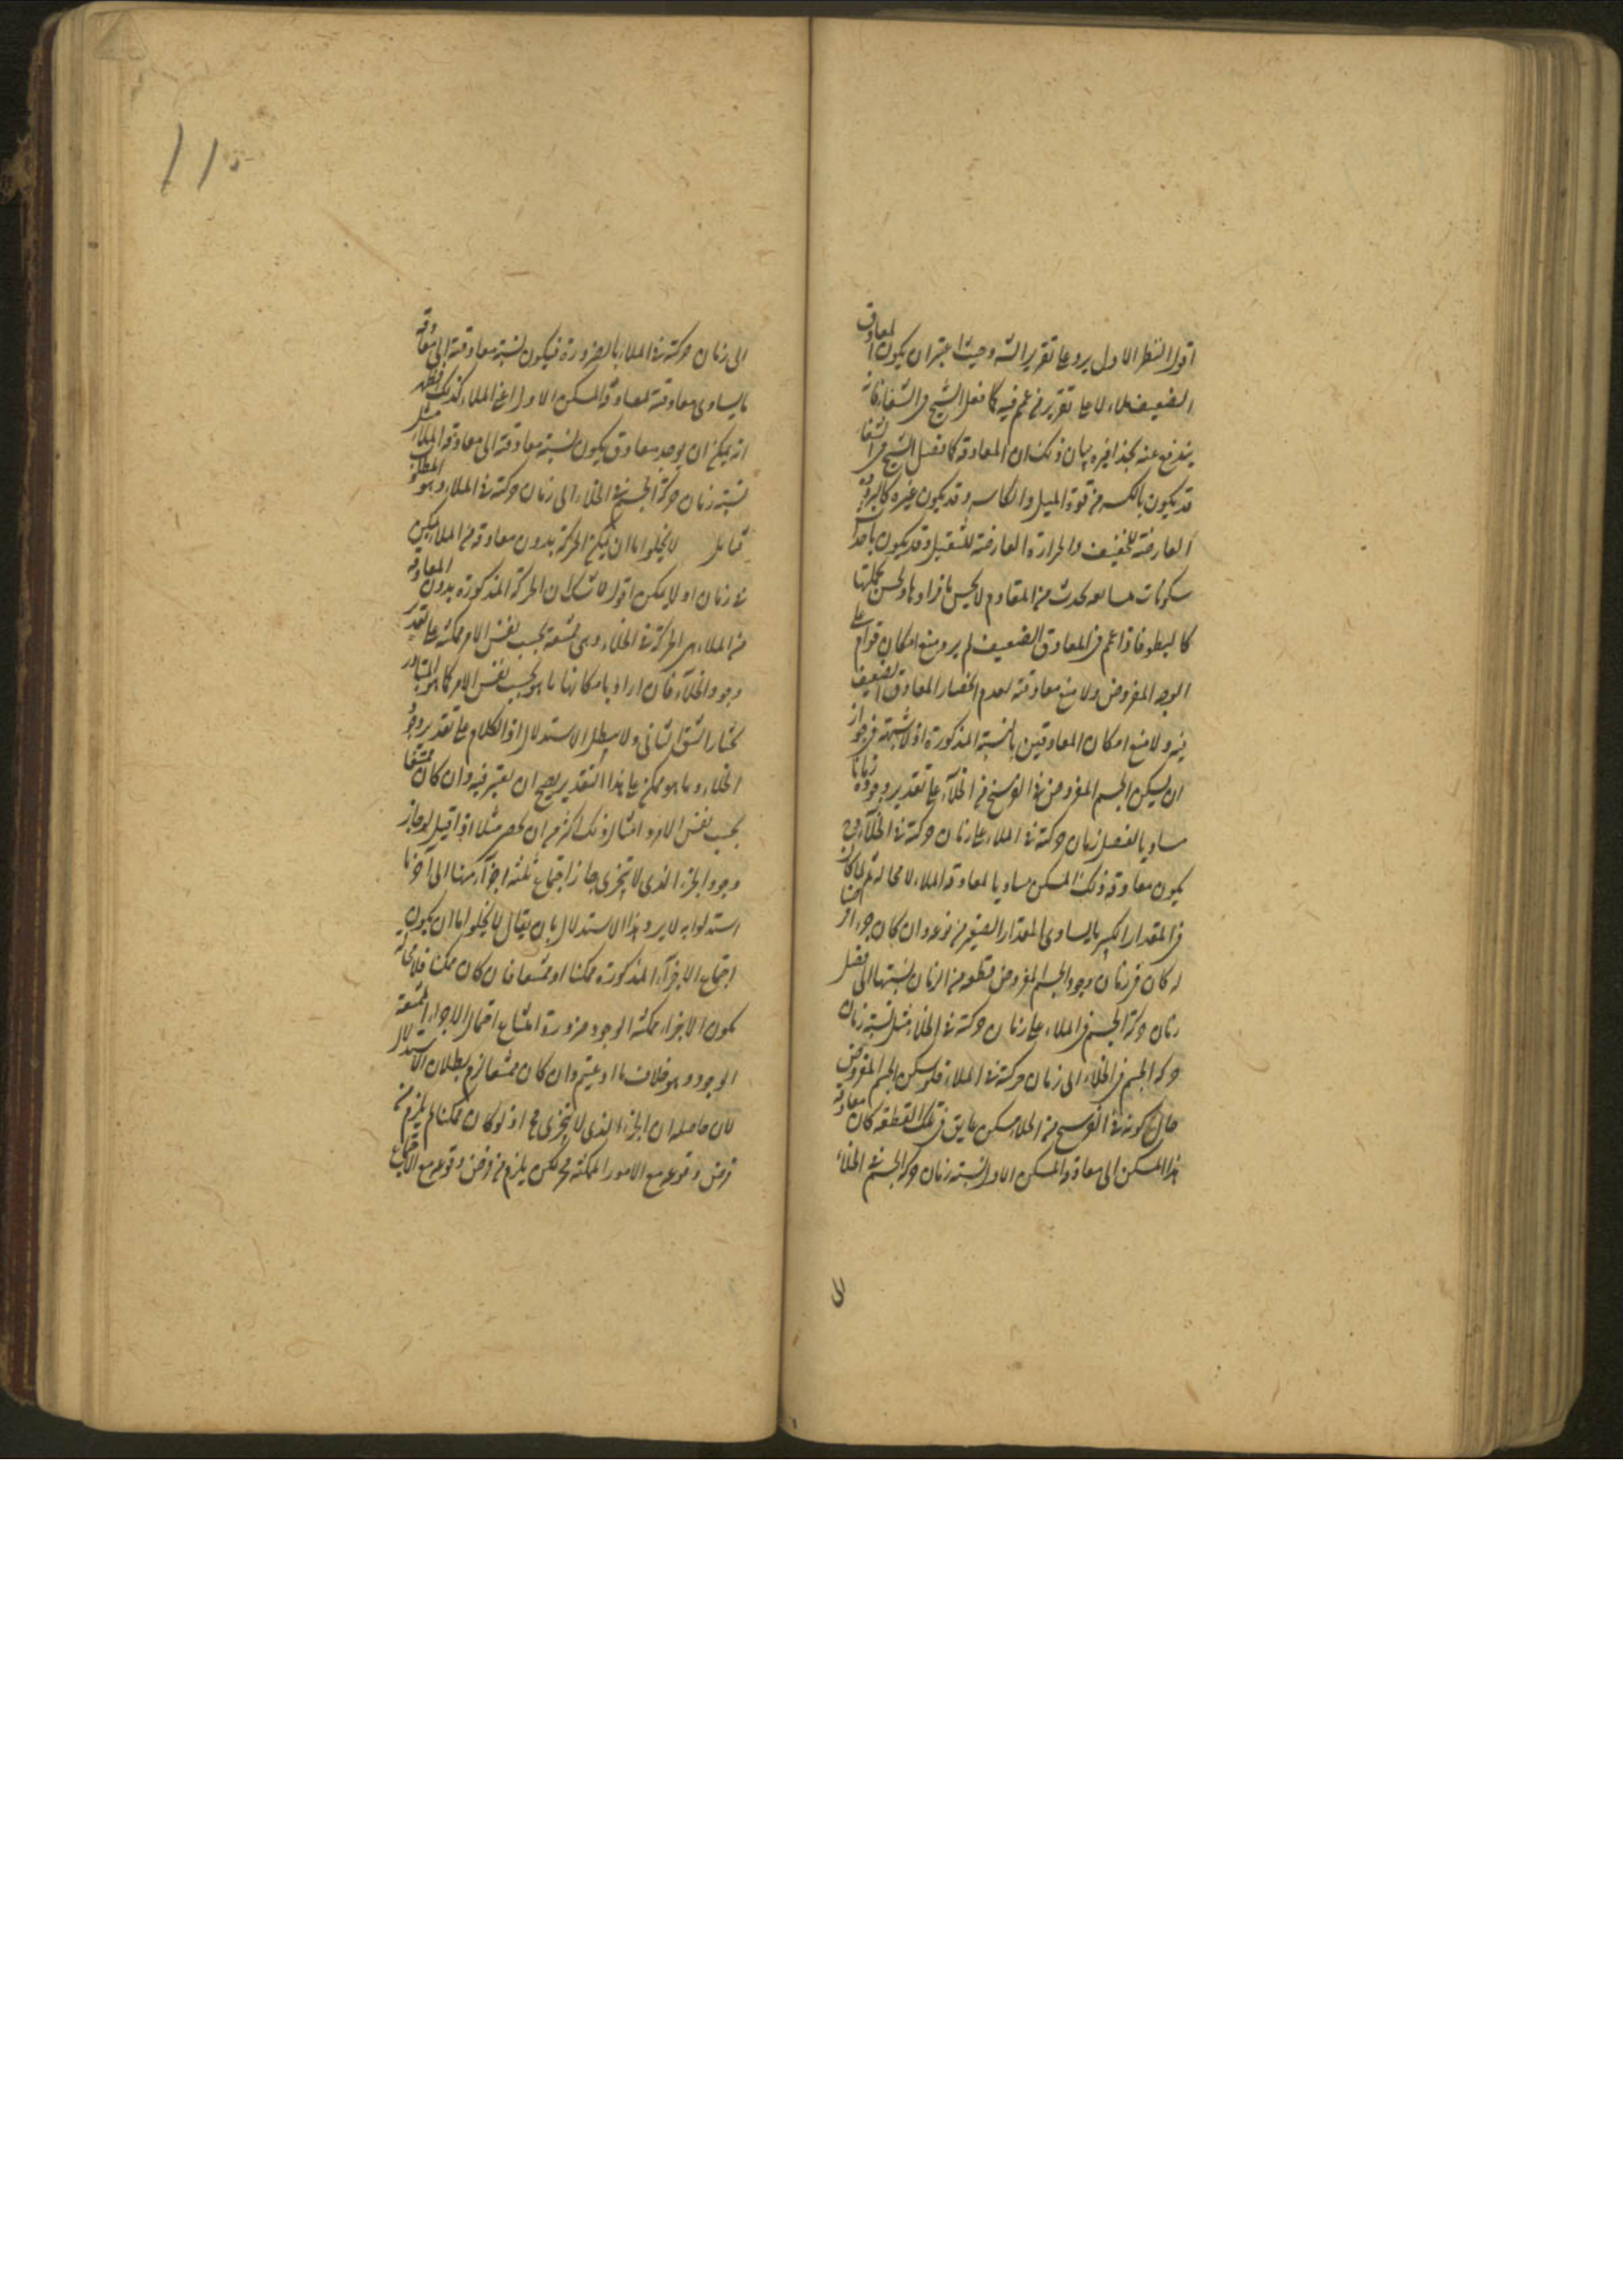 اقول النظر الاول يرد على تقرير الشه وحيث اعتبر ان يكون المعاوق
الضعيف ملاء لا على تقرير من عمم فيه كما فعل الشيخ فى الشفاء فانه
يندفع عنه بحذافيره بيان ذلك ان المعاوقة كما فصل الشيخ فى الشفاء
قد يكون بالكسر من قوة الميل وانكاسه وقد يكون غيره كالبرودة
العارضة للخفيف والحرارة العارضة للثقيل وقد يكون باحداث
سكونات تحدث من المقاوم لا يحس بافرادها ويحس بجملتها
كالبطو فاذا عمم فى المعاوق الضعيف لم يرد منع امكان قوام على
الوجه المفروض ولا منع معاوقته لعدم انحصار المعاوق الضعيف
فيه ولا منع امكان المعاوقين بالنسبة المذكورة اذ لا شبهة فى جواز
ان يسكن الجسم المفروض فى الفرسخ من الخلآء على تقدير وجوده زمانا
مساويا لفضل زمان حركته فى الملاء على زمان حركته فى الخلآء وح
يكون معاوقة ذلك المسكن مساويا لمعاوقة الملاء لا محالة
فى المقدار الكبير ما يساوى المقدار الصغير من نوعه وان كان جزءا
له كان فى زمان وجود الجسم المفروض قطعة من الزمان نسبتها الى فضل
زمان حركة الجسم فى الملاء على زمان حركته فى الخلاء مثل نسبة زمان
حركة الجسم فى الخلاء الى زمان حركته فى الملاء فلو سكن الجسم المفروض
حال كونه فى الفرسخ من الخلاء بمسكن عايق فى تلك القطعة كان معاوقة
هذا المسكن الى معاوقة المسكن الاول نسبة زمان حركة الجسم فى الخلاء
الى
١١٥
الى زمان حركته فى الملاء بالضرورة فيكون نسبة معاوقته الى معاوقة
ما يساوى معاوقته لمعاوقة المسكن الاول اعنى الملاء كذلك فظهر
انه يمكن ان يوجد معاوق يكون نسبة معاوقته الى معاوقة الملاء مثل
نسبة زمان حركة الجسم فى الخلاء الى زمان حركته فى الملاء وهو المطلوب
قايل لا يخلو اما ان يمكن الحركة بدون معاوقة من الملاء يمكن
فى زمان او لا يمكن اقول لا شك ان الحركة المذكورة بدون المعاوقة
من الملاء هى الحركة فى الخلاء وهى ممتنعة بحسب نفس الامر ممكنة على تقدير
وجود الخلآء فان اراد بامكانها ما هو بحسب نفس الامر كما هو المتبادر
نختار الشق الثانى ولا يبطل الاستدلال اذ الكلام على تقدير وجود
الخلاء وما هو ممكن على هذا التقدير يصح ان يعتبر فيه وان كان ممتنعا
بحسب نفس الامر وامثال ذلك اكثر من ان يحصر مثلا اذا قيل لو جاز
وجود الجزء الذى لا يتجزى جاز اجتماع ثلثه اجزآء منها الى آخر ما
استدلوا به لا يرد هذا الاستدلال بان يقال لا يخلو اما ان يكون
اجتماع الاجزآء المذكورة ممكنا او ممتنعا فان كان ممكنا فلا محالة
يكون الاجزاء ممكنة الوجود ضرورة امتناع اجتماع الاجزاء الممتنعة
الوجود وهو خلاف ما ادعيتم وان كان ممتنعا لزم بطلان الاستدلال
لان حاصله ان الجزء الذى لا يتجزى مح اذ لو كان ممكنا لم يلزم من
فرض وقوعه مع الامور الممكنة مح لكن يلزم من فرض وقوعه مع الاجتماع